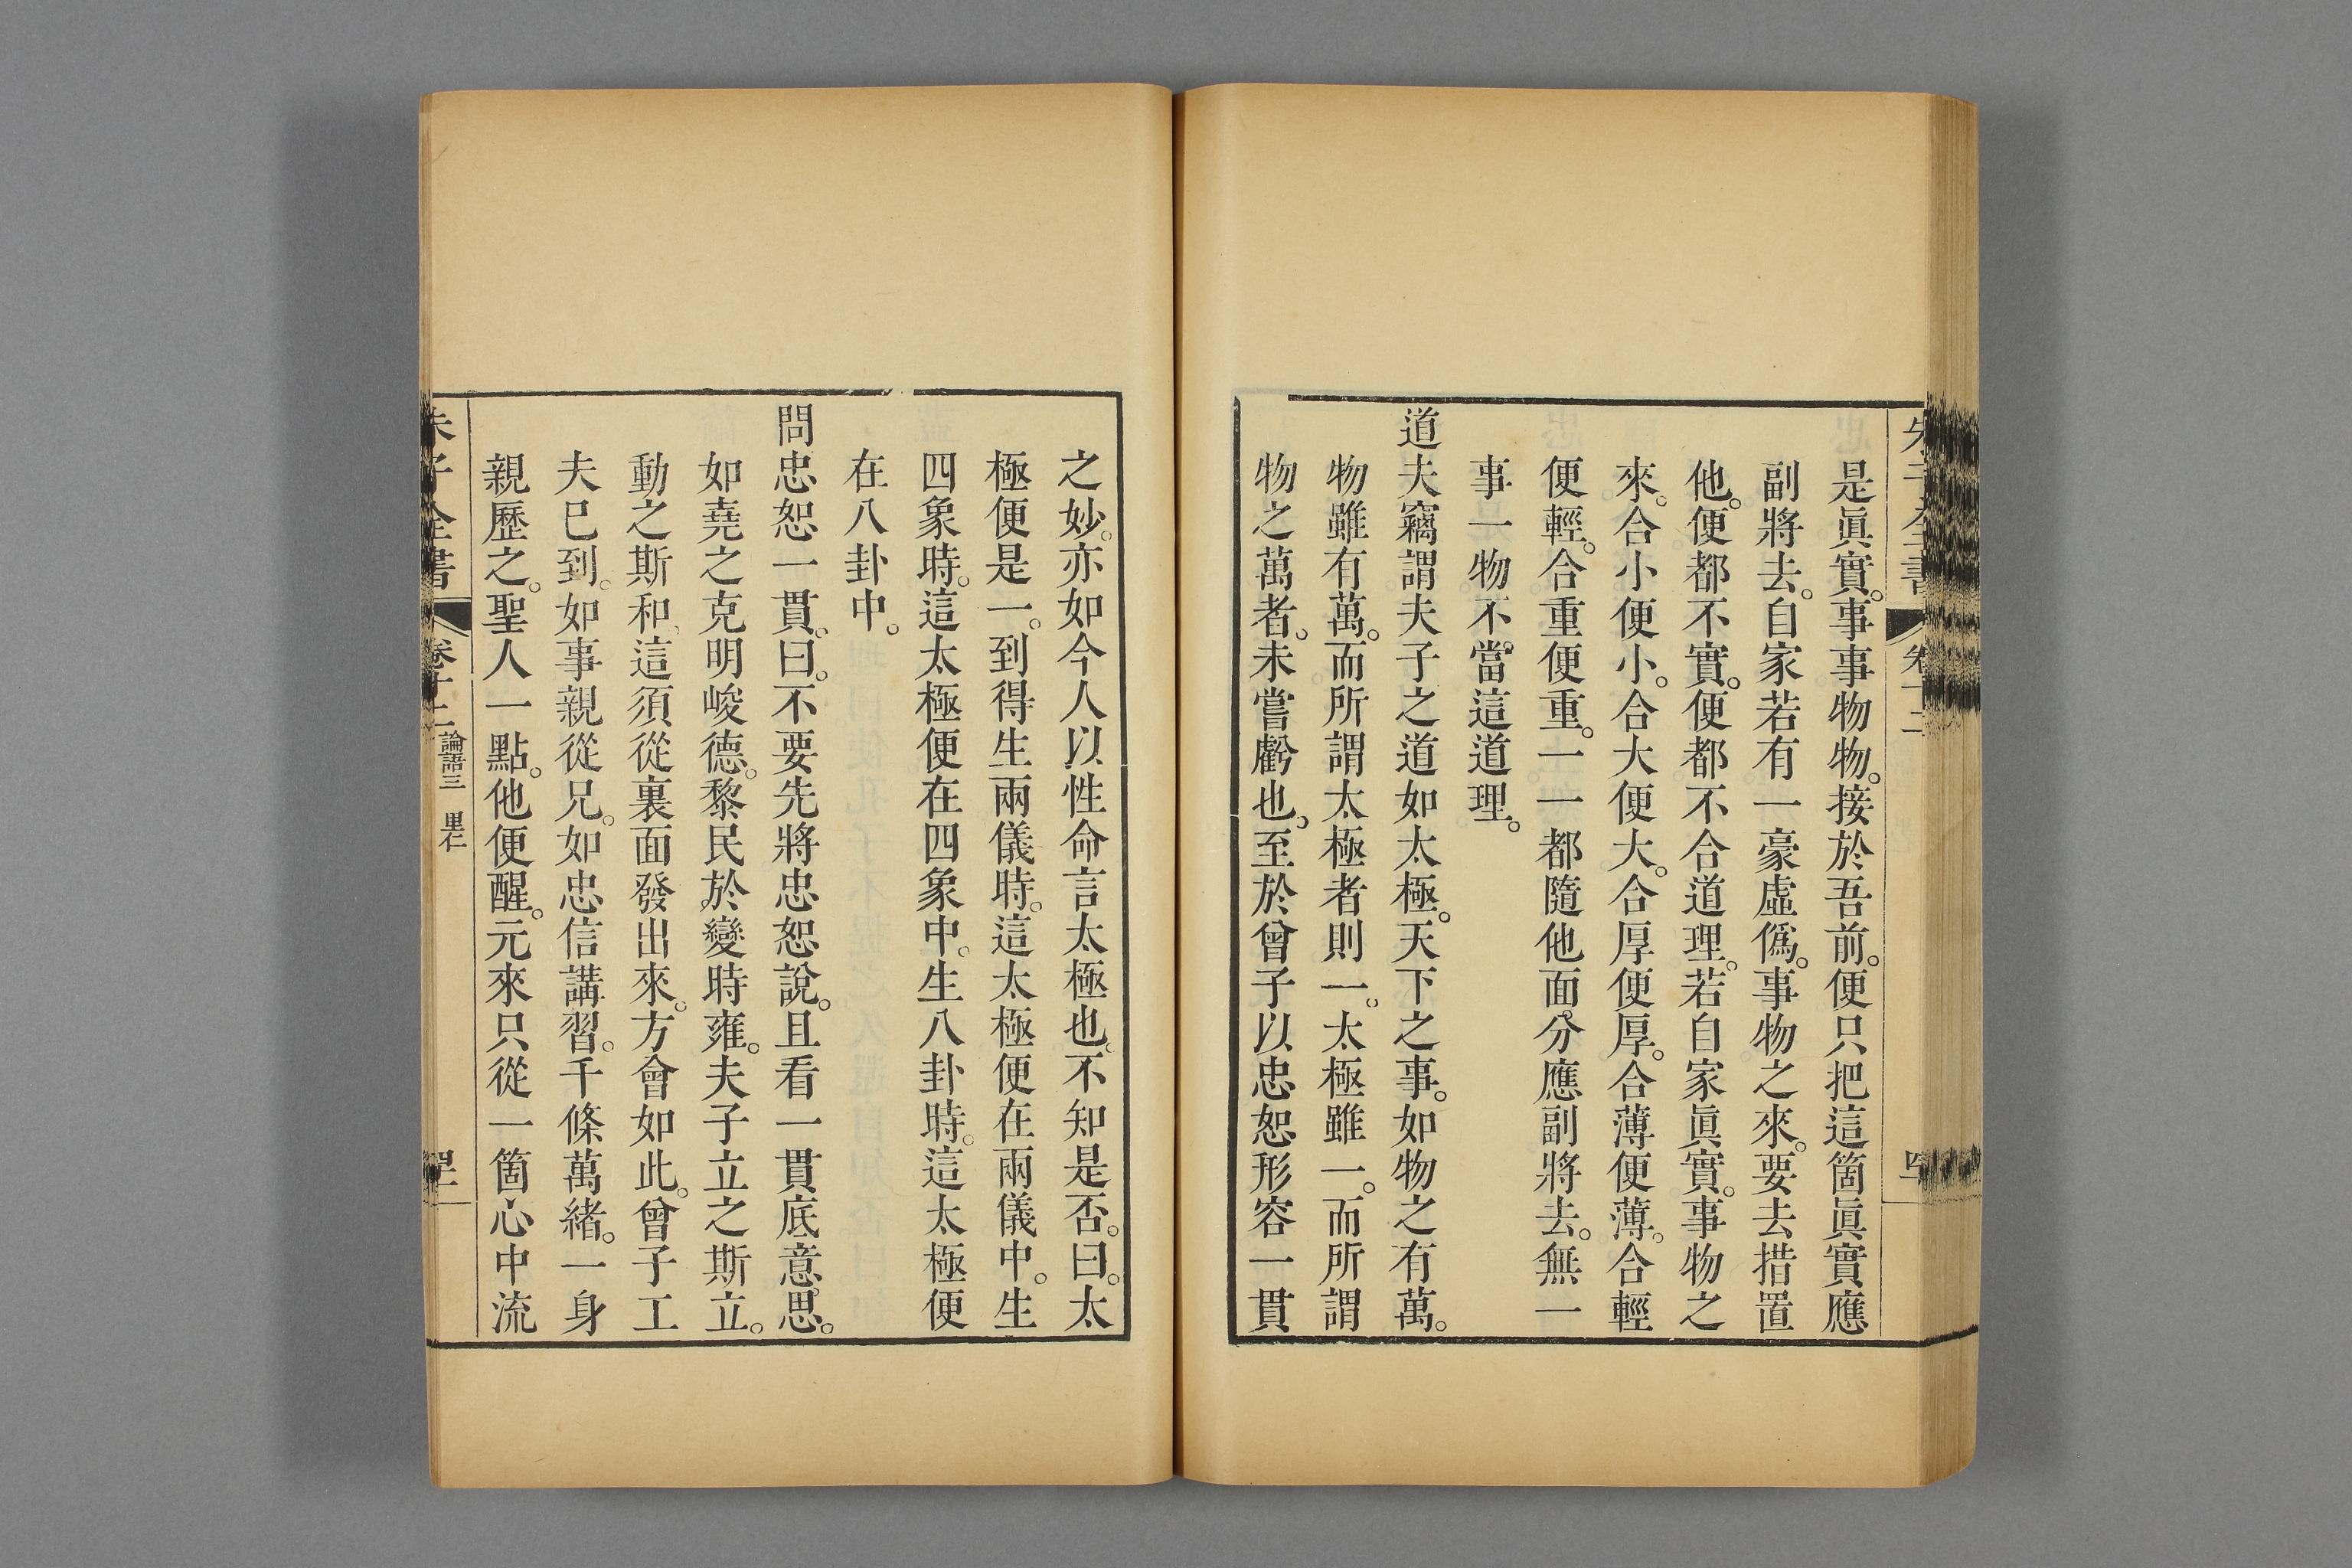 是眞實。事事物物。接於吾前。便只把這箇眞實應
副將去。自家若有一豪虛僞。事物之來。要去措置
他。便都不實。便都不合道理。若自家眞實。事物之
來。合小便小。合大便大。合厚便厚。合薄便薄。合輕
便輕。合重便重。一一都隨他面分應副將去。無一
事一物不當這道理。
道夫竊謂夫子之道如太極。天下之事。如物之有萬。
物雖有萬。而所謂太極者則一。太極雖一。而所謂
物之萬者。未嘗虧也。至於曾子以忠恕形容一貫
之妙。亦如今人以性命言太極也。不知是否。曰。太
極便是一。到得生兩儀時。這太極便在兩儀中。生
四象時。這太極便在四象中。生八卦時。這太極便
在八卦中。
問忠恕一貫。曰。不要先將忠恕說。且看一貫底意思。
如堯之克明峻德。黎民於變時雍。夫子立之斯立。
動之斯和。這須從裏面發出來。方會如此。曾子工
夫已到。如事親從兄。如忠信講習。千條萬緒。一身
親歷之。聖人一點。他便醒。元來只從一箇心中流
朱子全書 卷十二 論語三 里仁